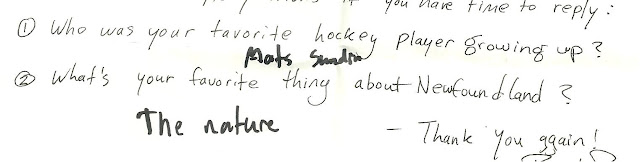 if you have time to reply:
① Who was your favorite hockey player growing up?
Mats Sundin
② What's your favorite thing about Newfoundland?
The nature
- Thank you again!